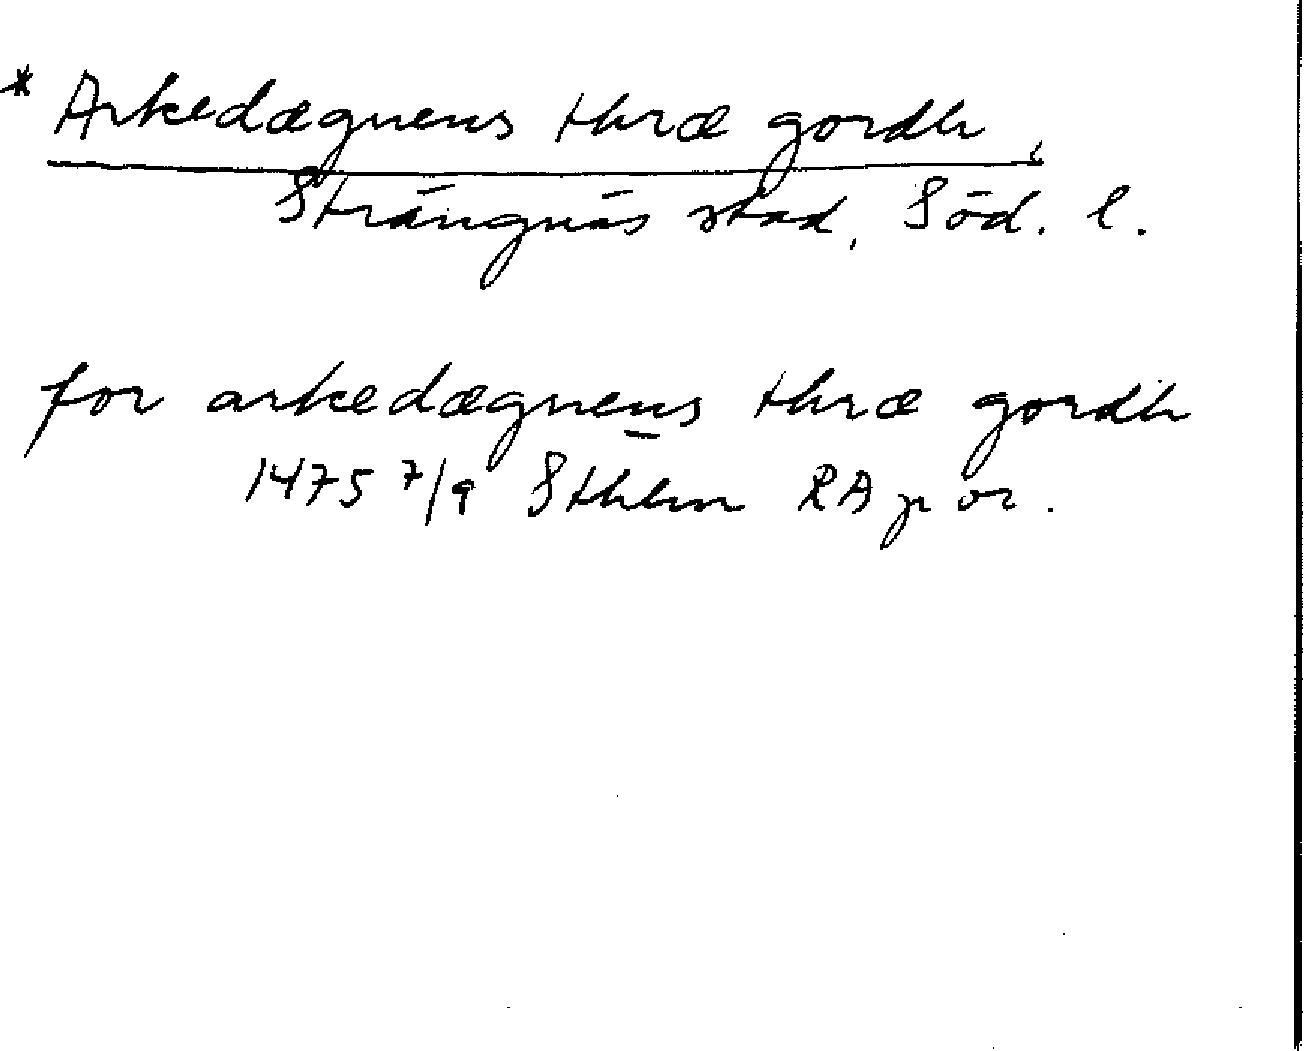 * Arkedægnens thræ gordh,
Strängnäs stad, Söd. l.
for arkedægnens thræ gordh
1475 7/9 Sthlm RAp or.